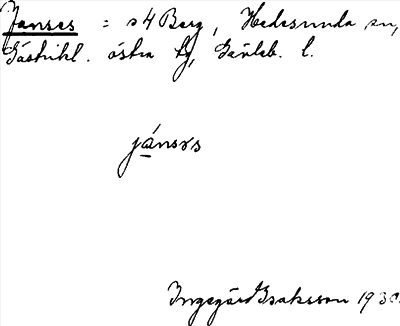 Janses = s4 Berg, Hedesunda sn,
Gästrikl. östra tg, Gävleb. l.
jánsəs
Ingegärd Isaksson 1930.